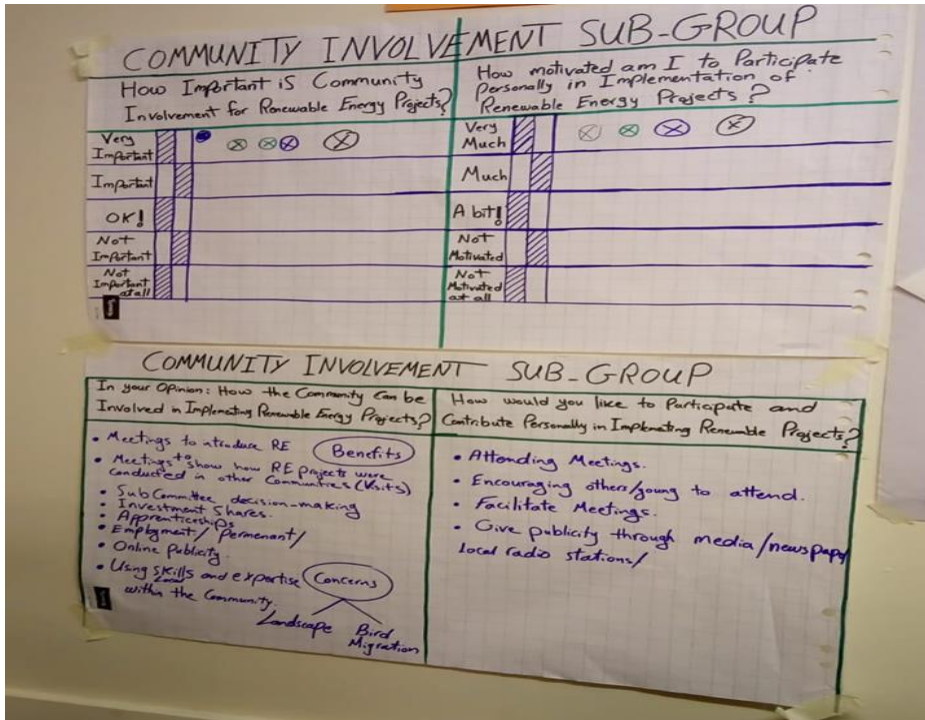 COMMUNITY INVOLVEMENT SUB-GROUP
How Important is Community
Involvement for Renewable Energy Projects?
Very
Important
Important
OK!
Not
Important
Not
Important
at all
How motivated am I to Participate
Personally in Implementation of
Renewable Energy Projects?
Very
Much
Much
A bit!
Not
Motivated
Not
Motivated
at all
COMMUNITY INVOLVEMENT SUB-GROUP
In your Opinion: How the Community Can be
Involved in Implementing Renewable Energy Projects?
• Meetings to ntroduce RE
Benefits
• Meetings to show how RE projects were
conducted in other Communities (Visits)
• SubCommittee decision-making
• Investment Shares.
• Apprenticeships
• Employment/Permenant/
• Online Publicity.
• Using Skills and expertise
Local
within the Community.
Concerns
Landscape Bird
Migration
How would you like to Participate and
Contribute Personally in Implementing Renewable Projects?
• Attending Meetings.
• Encouraging others/young to attend.
• Facilitate Meetings.
• Give publicity through media/newspapr
local radio stations/